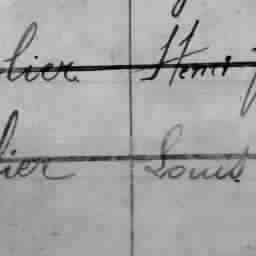 lier Henri
lier Louis